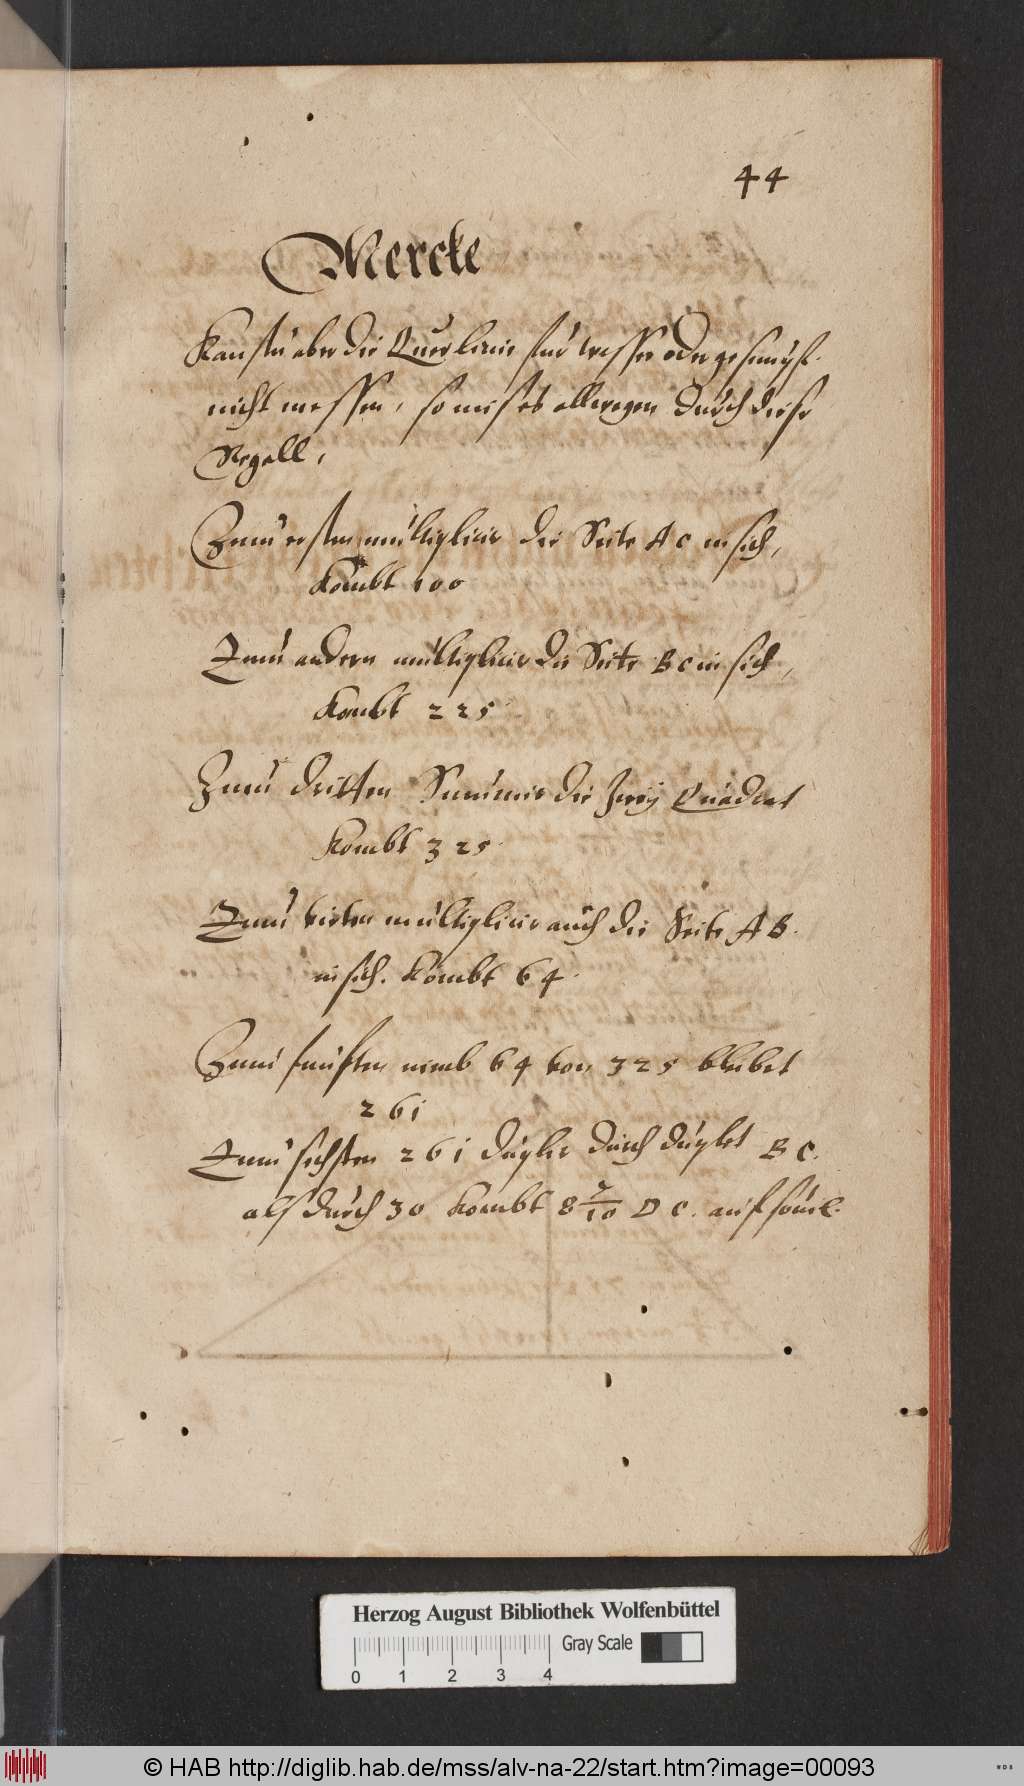 44
Mercke
Kanstu aber die Querlinie für wasser oder gesumpf
nicht messen, so mis es allwegen durch diese
Regell,
Zum ersten multiplicir die Seite A C in sich,
Kombt 100
Zum andern multiplicir die Seite B C in sich,
Kombt 225
Zum dritten Summir die zwey Quadrat
Kombt 325
Zum vierten multiplicir auch die Seite A B.
in sich. Kombt 64.
Zum funften nimb 64 von 325 bleibet
261
Zum sechsten 261 duplir durch duplet B C.
als durch 30 Kombt 8 7/10 D C. auf souil
Herzog August Bibliothek Wolfenbüttel
Gray Scale
0 1 2 3 4
© HAB http://diglib.hab.de/mss/alv-na-22/start.htm?image=00093